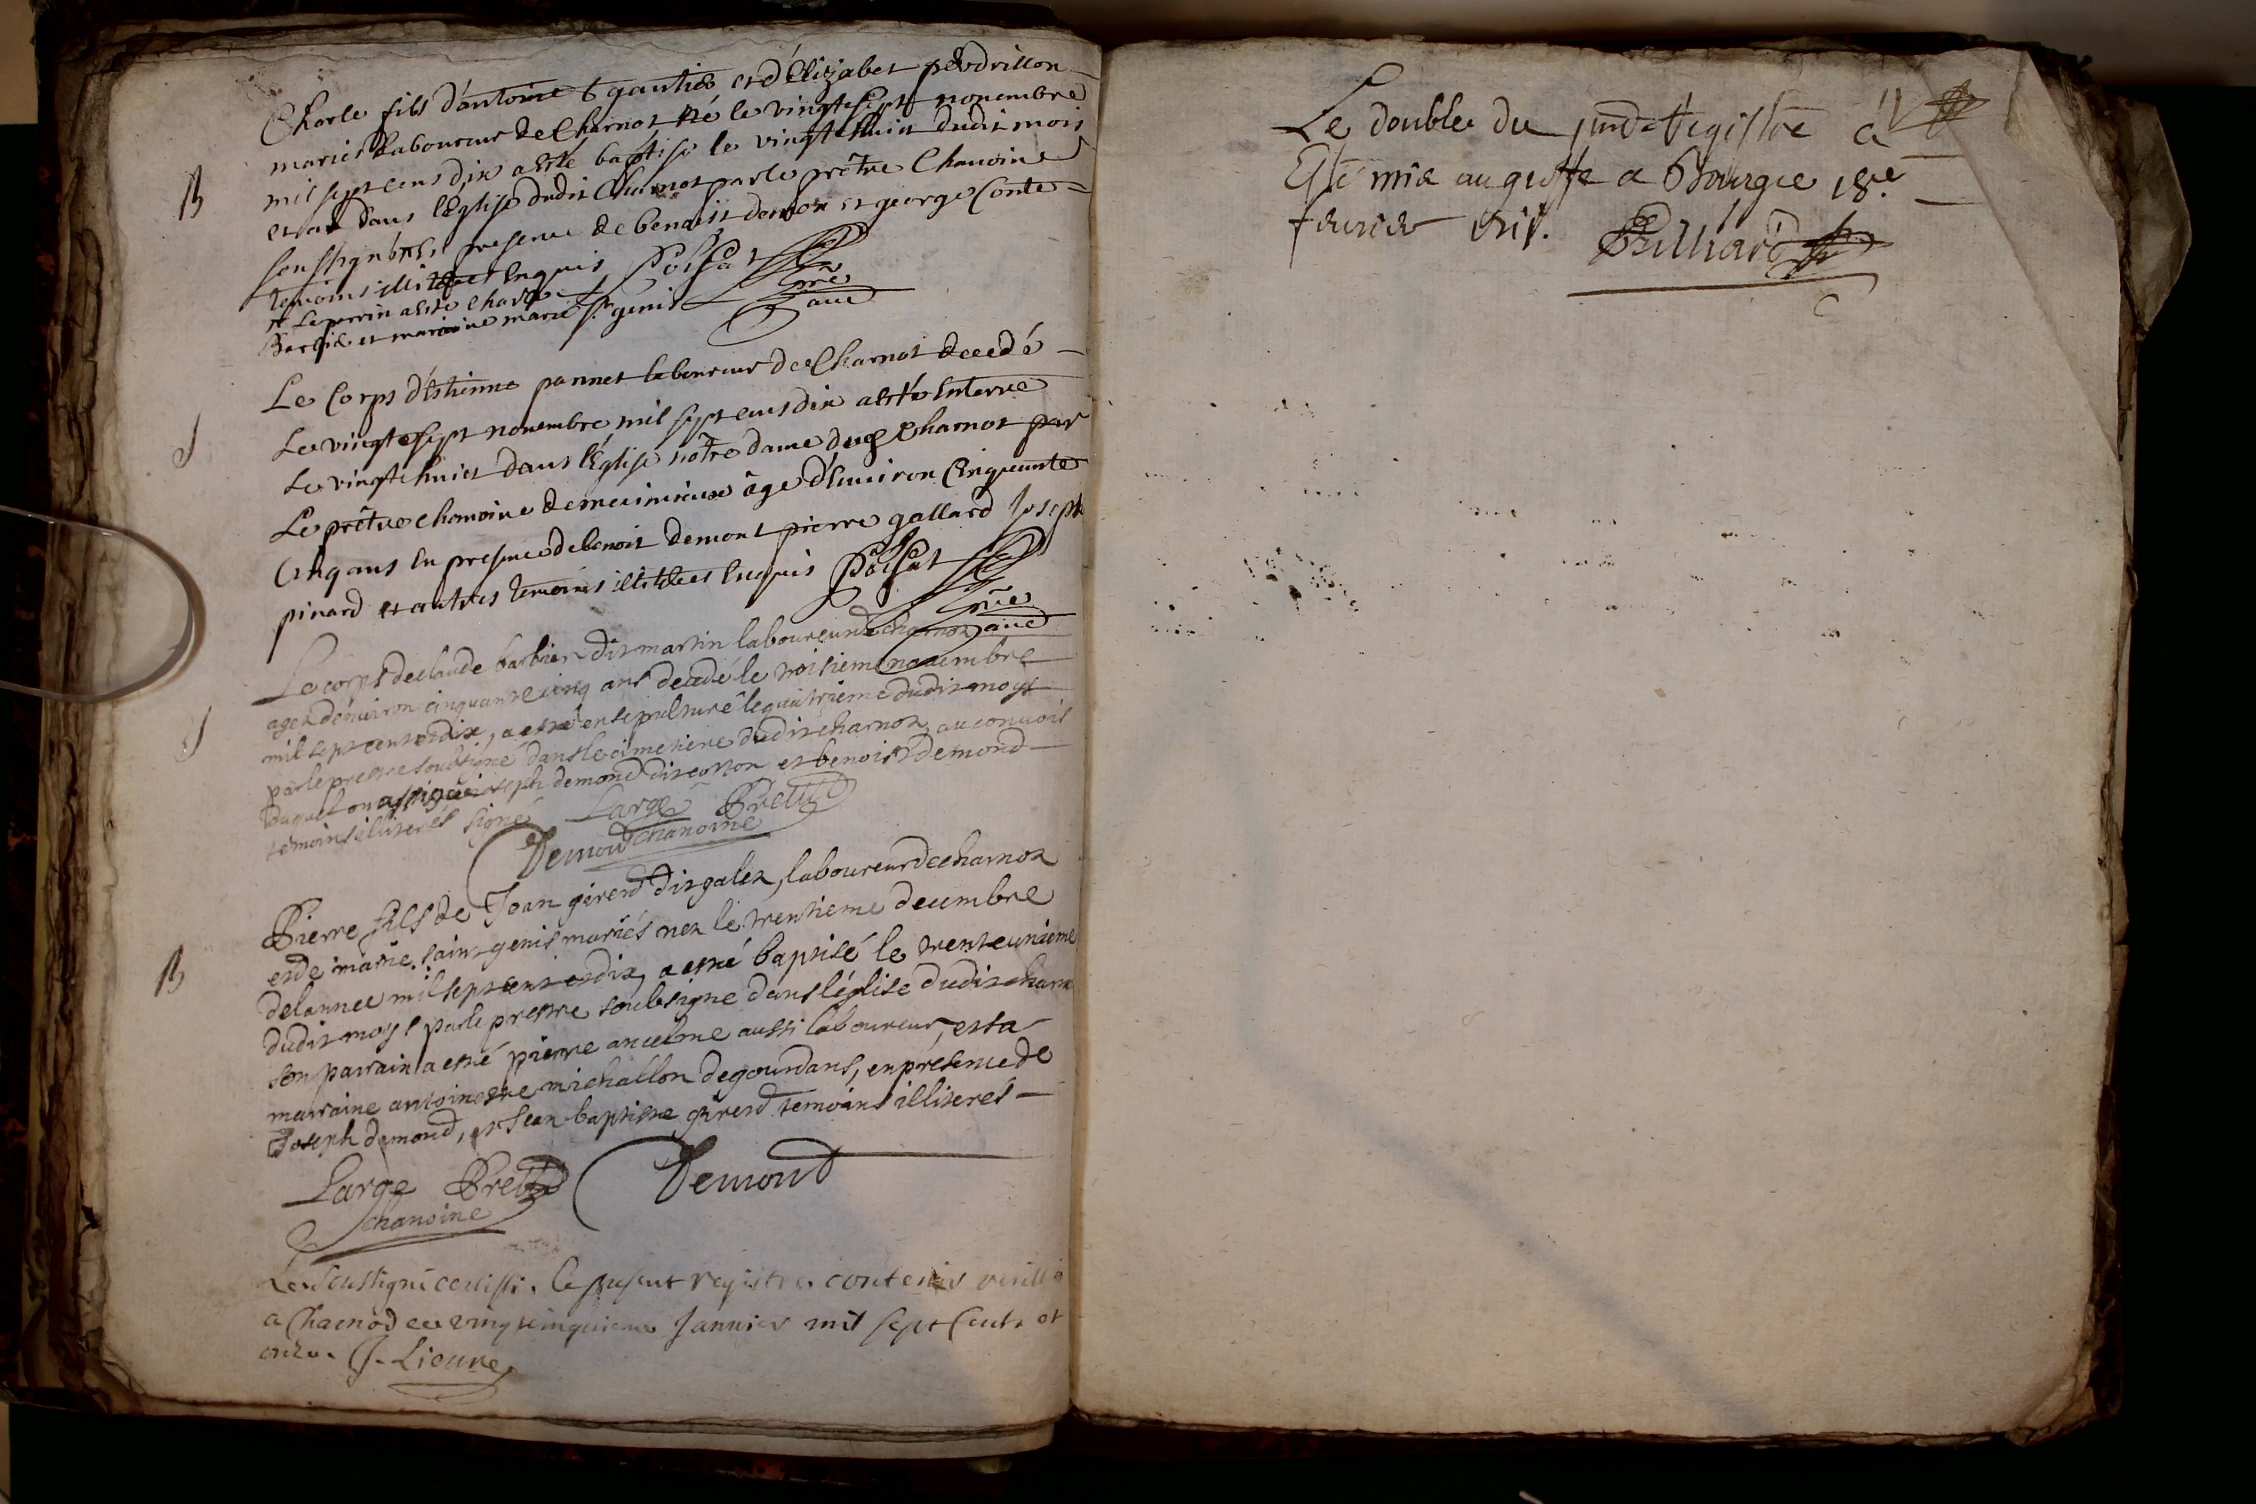 Charle fils d'antoine gautier et d'Elizabet perdrillon
mariés Laboureur de Charnot né le vingtsept nouembre
B
mil sept cens dix a esté baptisé le vingt huict dudit mois
et an dans l'Eglise dudit Charnot par le prêtre Chanoine
soussigné En presence de benoist demon et george Conte
temoins illiteres Enquis Poisat
et Le parrin a esté Charle pre
et maraine marie St genis
Le Corps d'Estienne pannet laboureur de Charnot decedé
Le vingt sept nouembre mil sept cens dix a esté Enterré
S
Le vingt huict dans l'Eglise nôtre dame de Charnot par
Le prêtre chanoine de meximieux âge d'Enuiron Cinquante
Cinq ans En presence de benoit demont pierre gallard Joseph
pinard et autres temoins illiteres Enquis Poisat
pre
Le corps de claude barbier dit martin laboureur de charnoz
agez denuiron cinquante cinq ans decedé le troisieme nouembre
mil sept cent et dix, a esté ensepulturé le quatrieme dudit moys
S
par le prestre soubsigné dans le cimetiere dudit charnoz au conuois
duquel on assigué ioseph demond dit et benoist demond
temoins illiterés signé Large Prettre
Demond chanoine
Pierre fils de Jean girerd dit galez, laboureur de charnoz
et de marie saint genis mariés nez le trentieme decembre
B
de lannee mil sept cent et dix, a esté baptisé le trente unieme
dudit moys par le prestre soubsigne dans léglise dudit charn
son parrain a esté pierre ancelme aussi laboureur, et sa
marraine antoinette michallon de gourdans, en présence de
Joseph demond, et Jean baptiste girerd temoins illiterés
Large Prettre Demond
chanoine
Le soussigné certiffie le present registre contenir verité
a Charnod ce vingt cinquieme Januier mil sept Cents et
onze. Lieure
Le double du pnt Registre a
Esté mis au greffe a Bourg ce 18e
feurier